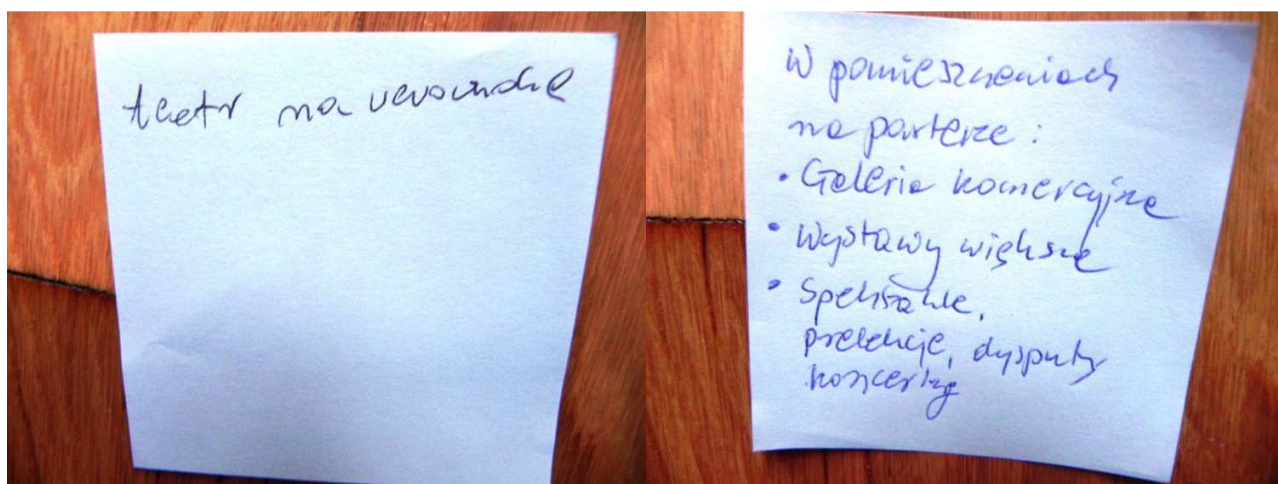 teatr na verandzie
W pomieszczeniach
na parterze :
• Galeria komercyjna
• Wystawy większe
• Spektakle,
prelekcje, dysputy
koncerty